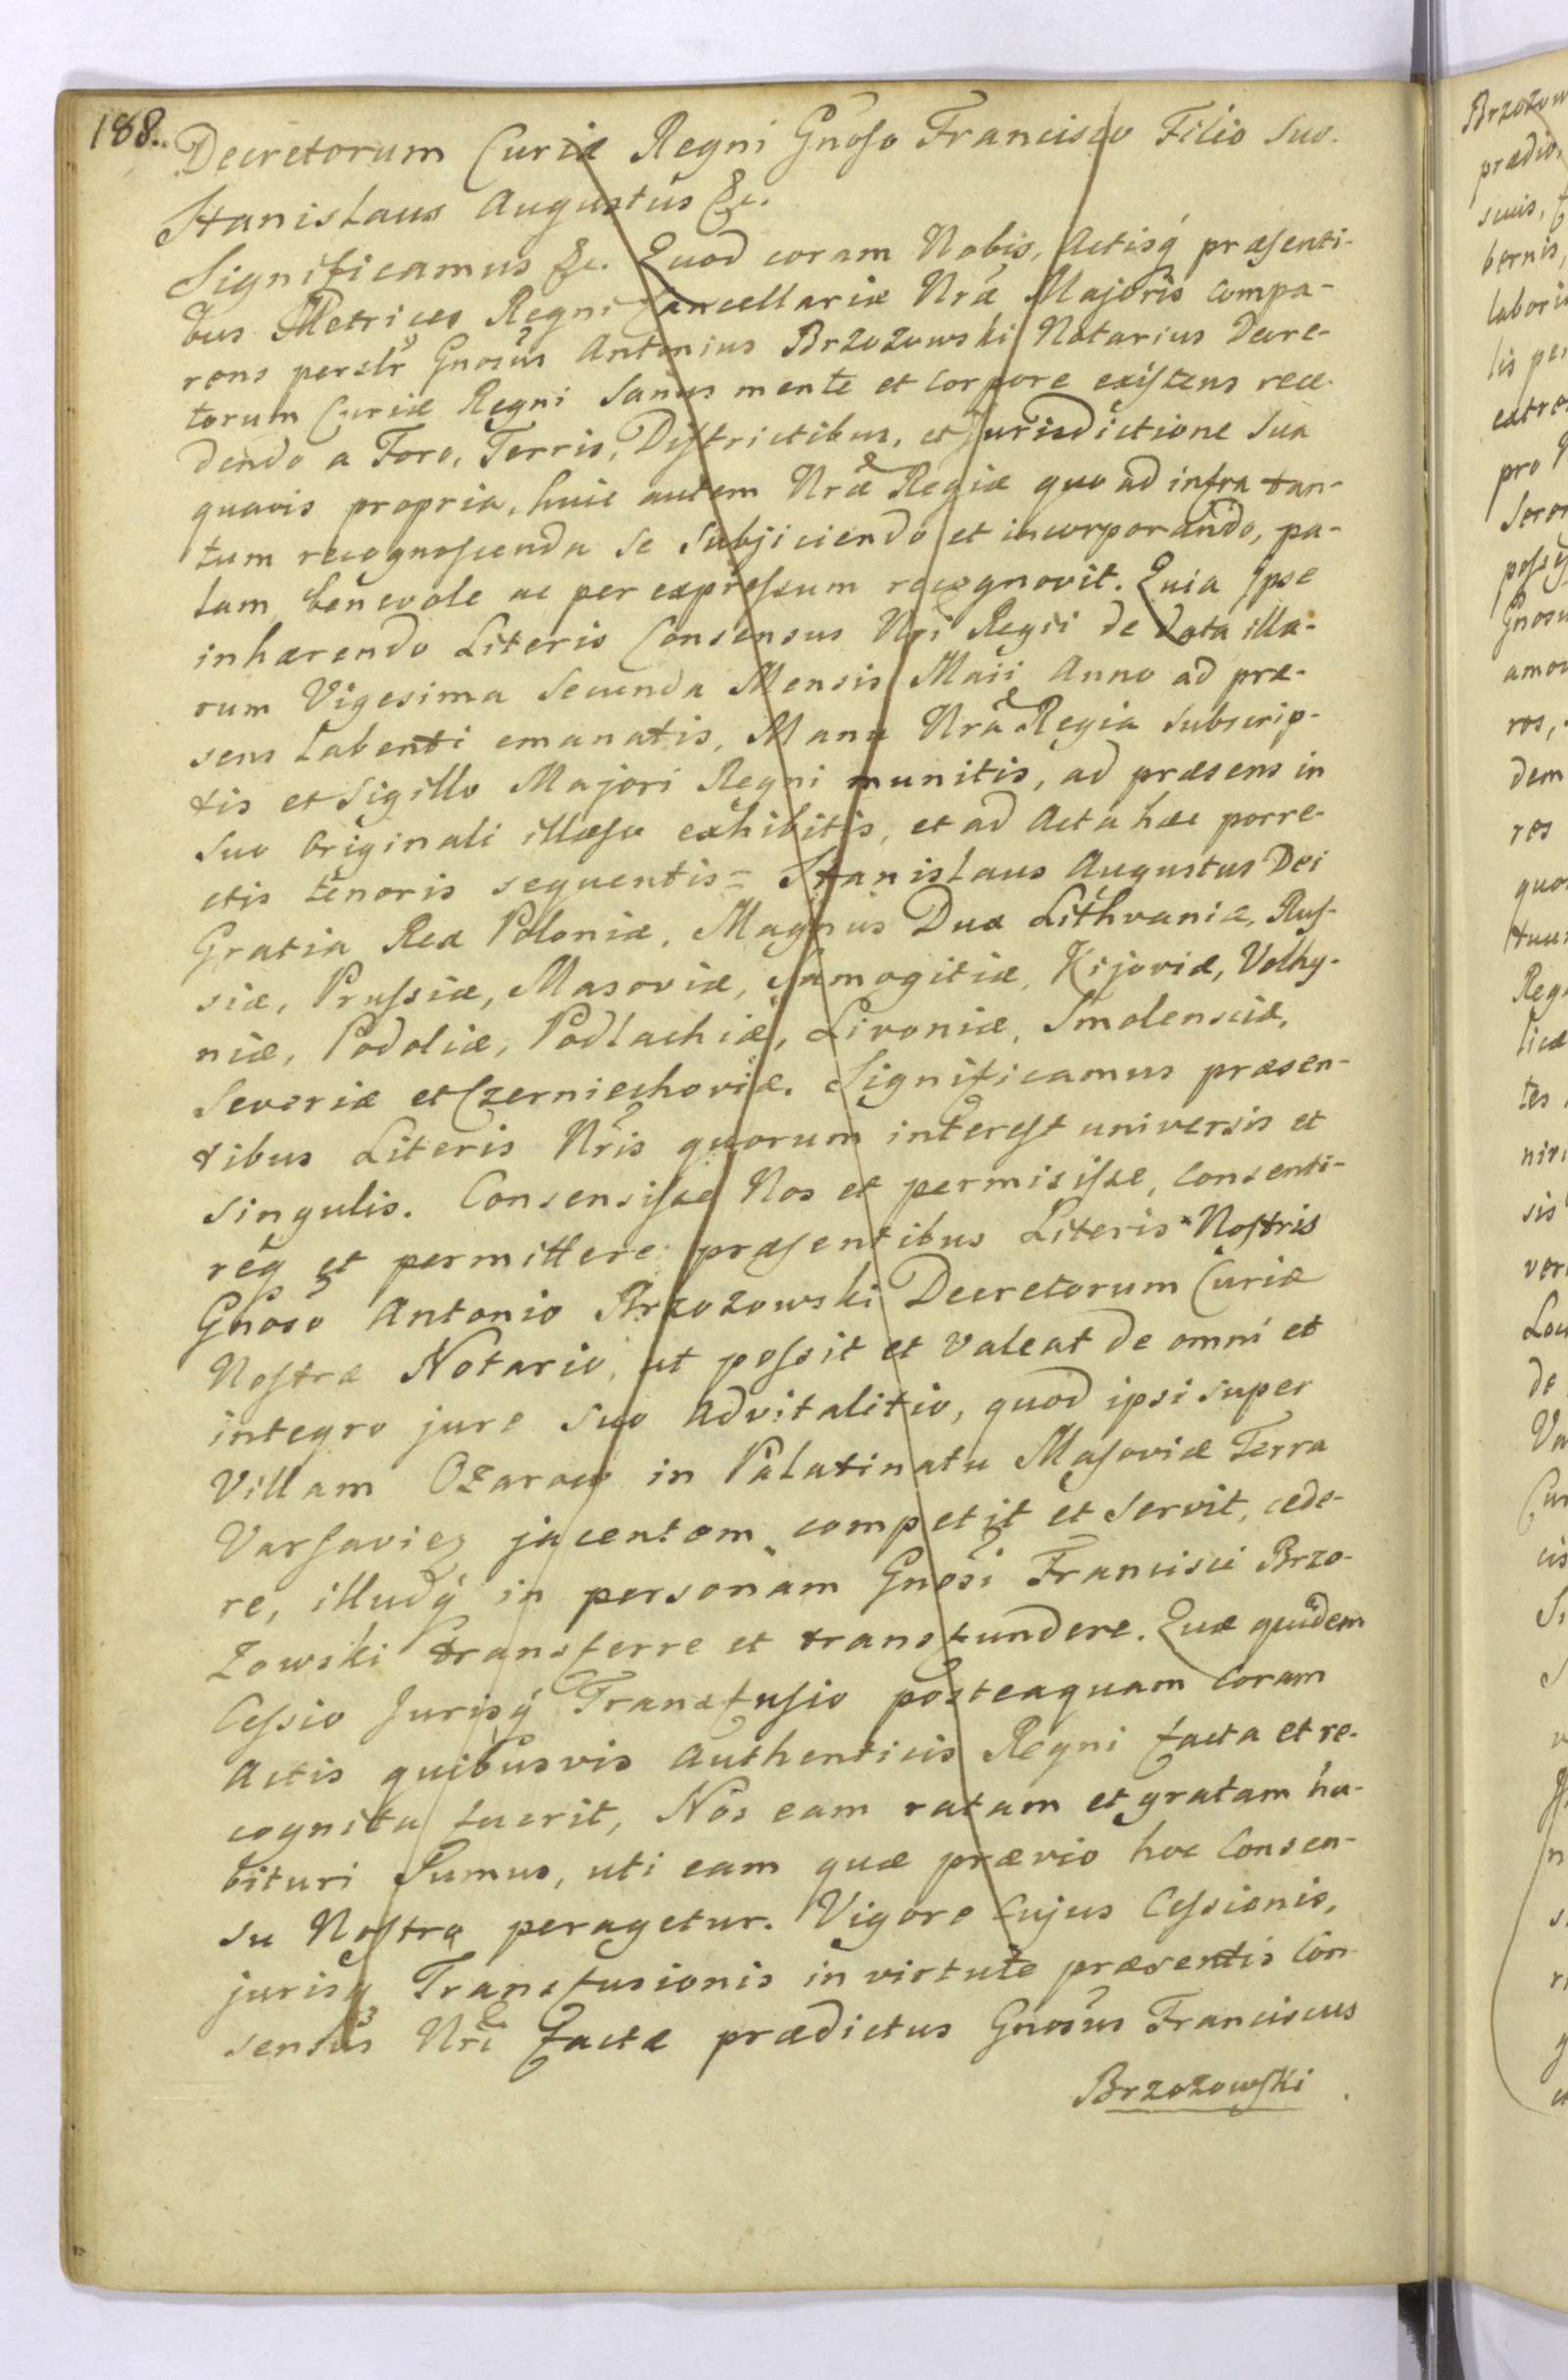 188.
Decretorum Curiæ Regni Gnoso Francisco Filio Suo.
Stanislaus Augustus &c.
Significamus &c. Quod coram Nobis, Actisq́ præsenti-
bus Metrices Regni Cancellariæ Nrǎ Majoris Compa-
rens persŕ Gnosus Antonius Brzozowski Notarius Decre-
torum Curiæ Regni Sanus mente et Corpore existens rece-
dendo a Foro, Terris, Districtibus, et Jurisdictione Sua
quavis propria, huic autem Nræ Regiæ quo ad infra tan-
tum recognoscenda se Subjiciendo et incorporando, pa-
lam, benevole ac per expressum recognovit. Quia Ipse
inhærendo Literis Consensus Nri Regii de Data illa-
rum Vigesima Secunda Mensis Maii Anno ad præ-
sens labenti emanatis, Manu Nra Regia Subscrip-
tis et Sigillo Majori Regni munitis, ad præsens in
Suo Originali illæso exhibitis, et ad Acta hæc porre-
ctis tenoris sequentis = Stanislaus Augustus Dei
Gratia Rex Poloniæ, Magnus Dux Lithvaniæ, Rus-
siæ, Prussiæ, Masoviæ, Samogitiæ, Kijoviæ, Volhy-
niæ, Podoliæ, Podlachiæ, Livoniæ, Smolensciæ,
Severiæ et Czerniechoviæ. Significamus præsen-
tibus Literis Nris quorum interest universis et
singulis. Consensisse Nos et permisisse, Consenti-
req et permittere præsentibus Literis Nostris
Gnoso Antonio Brzozowski Decretorum Curiæ
Nostræ Notario, ut possit et valeat de omni et
integro jure Suo Advitalitio, quod ipsi super
Villam Ożarow in Palatinatu Masoviæ Terra
Varsavieʒ jacentem competit et Servit, cede-
re, illudq́ in personam Gnosi Francisci Brzo-
zowski transferre et transfundere. Quæ quidem
Cessio Jurisq́ Transfusio posteaquam Coram
Actis quibusvis Authenticis Regni facta et re-
cognita fuerit, Nos eam ratam et gratam ha-
bituri Sumus, uti eam quæ prævio hoc Consen-
su Nostro peragetur. Vigore Cujus Cessionis,
jurisq Transfusionis in virtute præsentis Con-
sensus Nri factæ prædictus Gnosus Franciscus
Brzozowski